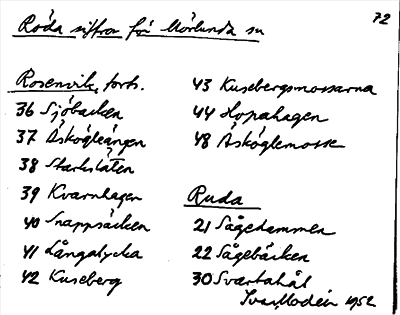 72
Röda siffror för Mörlunda sn
Rosenvik, forts.
36 Sjöbacken
37 Äskögleängen
38 Starkslåten
39 Kvarnhagen
40 Snappsäcken
41 Långalycka
42 Kuseberg
43 Kusebergsmossarna
44 Hopahagen
48 Äsköglemosse
Ruda
21 Sågedammen
22 Sågebäcken
30 Svartahål
Ivar Modéer 1952